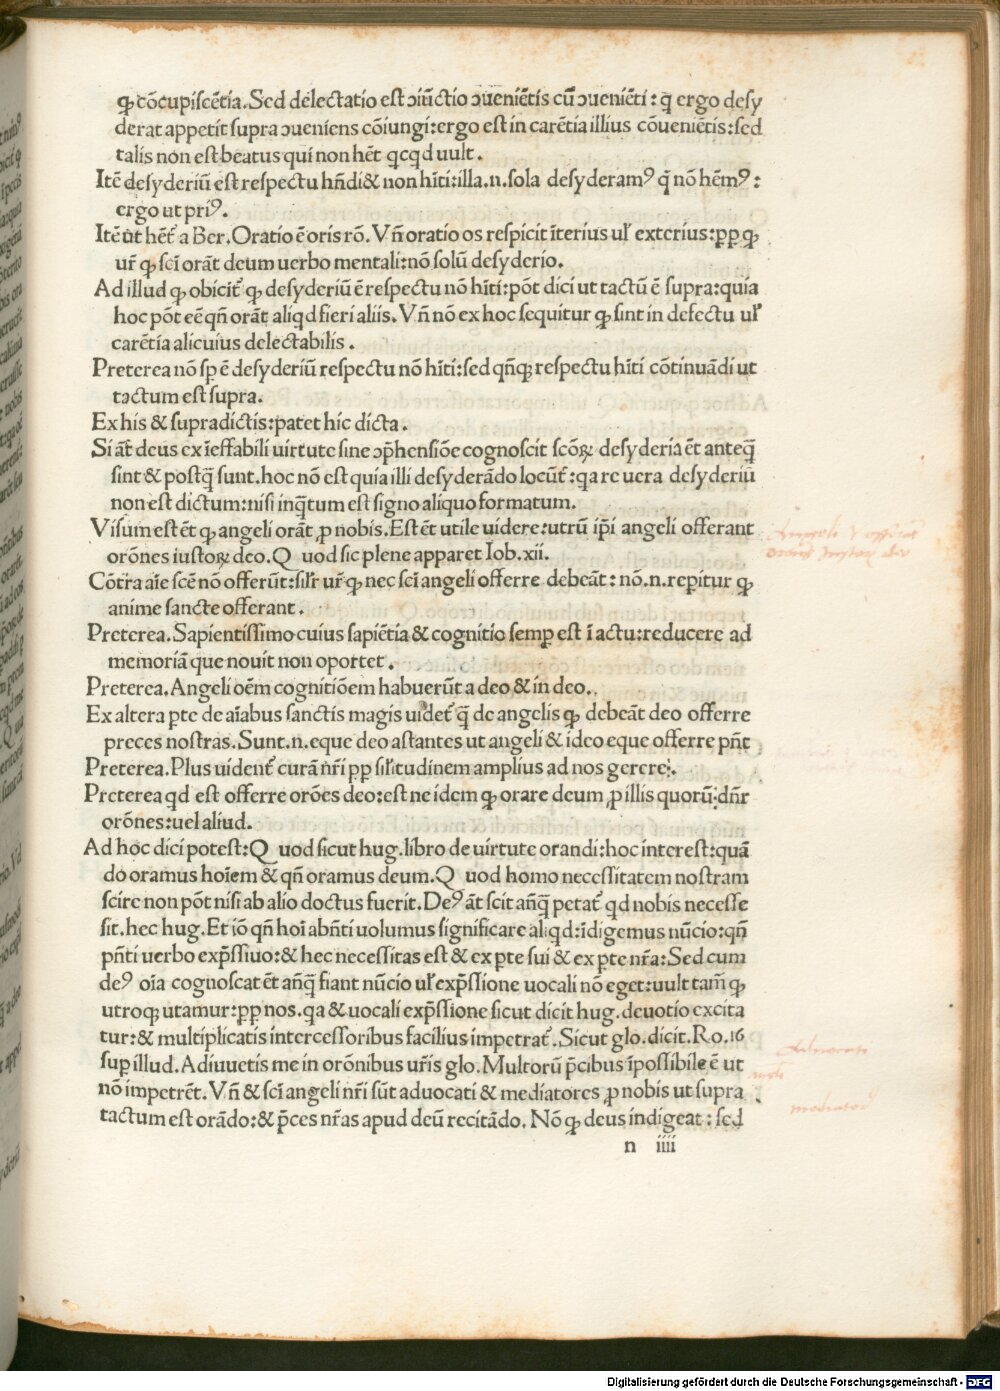 ꝙ cōcupiscētia. Sed delectatio est ↄiūctio ↄueniētis cū ↄueniēti: q̄ ergo desy
derat appetit supra ↄueniens cōiungi: ergo est in carētia illius cōueniētis: sed
talis non est beatus qui non hēt qcqd uult.
Itē desyderiū est respectu hn̄di & non hīti: illa .n. sola desyderamꝰ q̄ nō hēmꝰ:
ergo ut priꝰ.
Itē ut hēt᷑ a Ber. Oratio ē oris rō. Vn̄ oratio os respicit īterius ul᷑ exterius: pp ꝙ
ur̄ ꝙ sci orāt deum uerbo mentali: nō solū desyderio.
Ad illud ꝙ obicit᷑ ꝙ desyderiū ē respectu nō hīti: pōt dici ut tactū ē supra: quia
hoc pōt eē qn̄ orāt aliqd fieri aliis. Vn̄ nō ex hoc sequitur ꝙ sint in defectu ul᷑
carētia alicuius delectabilis.
Preterea nō sp ē desyderiū respectu nō hīti: sed qn̄qꝫ respectu hīti cōtinuādi ut
tactum est supra.
Ex his & supradictis: patet hic dicta.
Si āt deus ex ieffabili uirtute sine ↄp̄hensiōe cognoscit scōꝝ desyderia ēt anteq̄
sint & postq̄ sunt. hoc nō est quia illi desyderādo locūt᷑: qa re uera desyderiū
non est dictum: nisi inq̄tum est signo aliquo formatum.
Visum est ēt ꝙ angeli orāt ꝓ nobis. Est ēt utile uidere: utrū ip̄i angeli offerant
orōnes iustoꝝ deo. Q uod sic plene apparet Iob. xii.
Cōtra aīe scē nō offerūt: sil᷑r ur̄ ꝙ nec sci angeli offerre debeāt: nō .n. repitur ꝙ
anime sancte offerant.
Preterea. Sapientissimo cuius sapiētia & cognitio semp est ī actu: reducere ad
memoriā que nouit non oportet.
Preterea. Angeli oēm cognitiōem habuerūt a deo & in deo.
Ex altera pte de aīabus sanctis magis uidet᷑ q̄ de angelis ꝙ debeāt deo offerre
preces nostras. Sunt .n. eque deo astantes ut angeli & ideo eque offerre pn̄t
Preterea. Plus uident᷑ curā nr̄i pp sil᷑itudinem amplius ad nos gerere.
Preterea qd est offerre orōes deo: est ne idem ꝙ orare deum ꝓ illis quorū dn̄r
orōnes: uel aliud.
Ad hoc dici potest: Q uod sicut hug. libro de uirtute orandi: hoc interest: quā
do oramus hoīem & qn̄ oramus deum. Q uod homo necessitatem nostram
scire non pōt nisi ab alio doctus fuerit. Deꝰ āt scit an̄q̄ petat᷑ qd nobis necesse
sit. hec hug. Et iō qn̄ hoī abn̄ti uolumus significare aliqd: īdigemus nūcio: qn̄
pn̄ti uerbo exp̄ssiuo: & hec necessitas est & ex pte sui & ex pte nr̄a: Sed cum
deꝰ oīa cognoscat ēt an̄q̄ fiant nūcio ul᷑ exp̄ssione uocali nō eget: uult tam̄ ꝙ
utroqꝫ utamur: pp nos. qa & uocali exp̄ssione sicut dicit hug. deuotio excita
tur: & multiplicatis intercessoribus facilius impetrat᷑. Sicut glo. dicit. Ro. 16
sup illud. Adiuuetis me in orōnibus ur̄is glo. Multorū p̄cibus īpossibile ē ut
nō impetrēt. Vn̄ & sci angeli nr̄i sūt aduocati & mediatores ꝓ nobis ut supra
tactum est orādo: & p̄ces nr̄as apud deū recitādo. Nō ꝙ deus indigeat: sed
n iiii
Digitalisierung gefördert durch die Deutsche Forschungsgemeinschaft - DFG